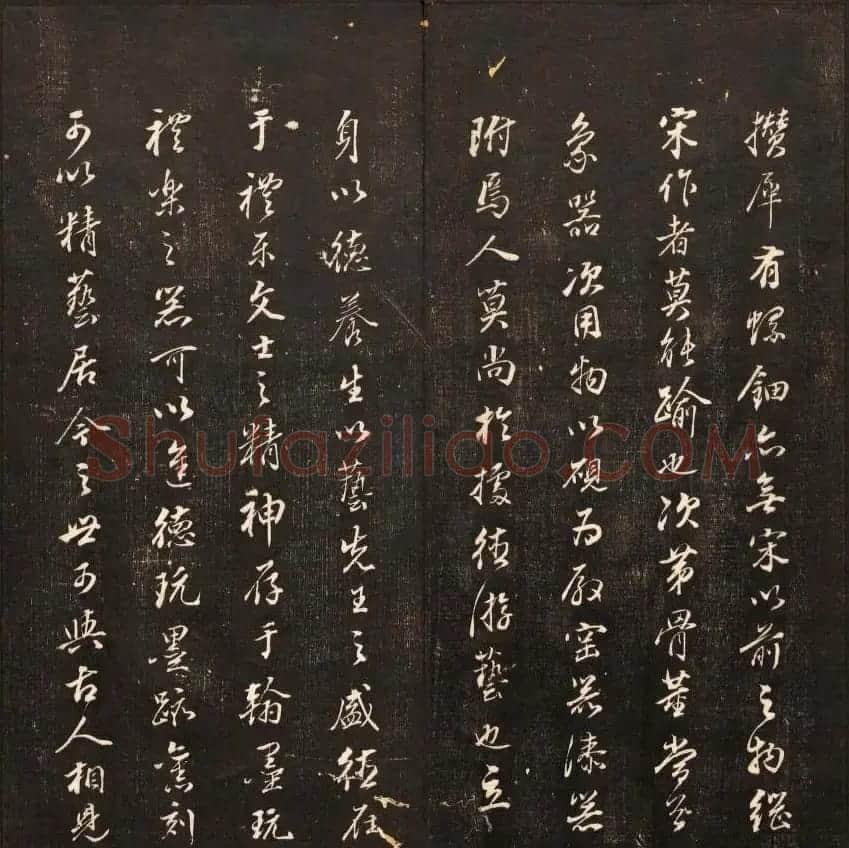 攢犀有螺鈿亦無宋以前之物繼
宋作者莫能踰也次第骨董
象器次用物以硯為殿窑器漆器
附焉人莫尚於據德游藝也立
身以德養生以藝先王之盛德在
于禮樂文士之精神存于翰墨玩
禮樂之器可以進德玩墨跡舊刻
可以精藝居今之世可與古人相見
Shufaziliao.COM